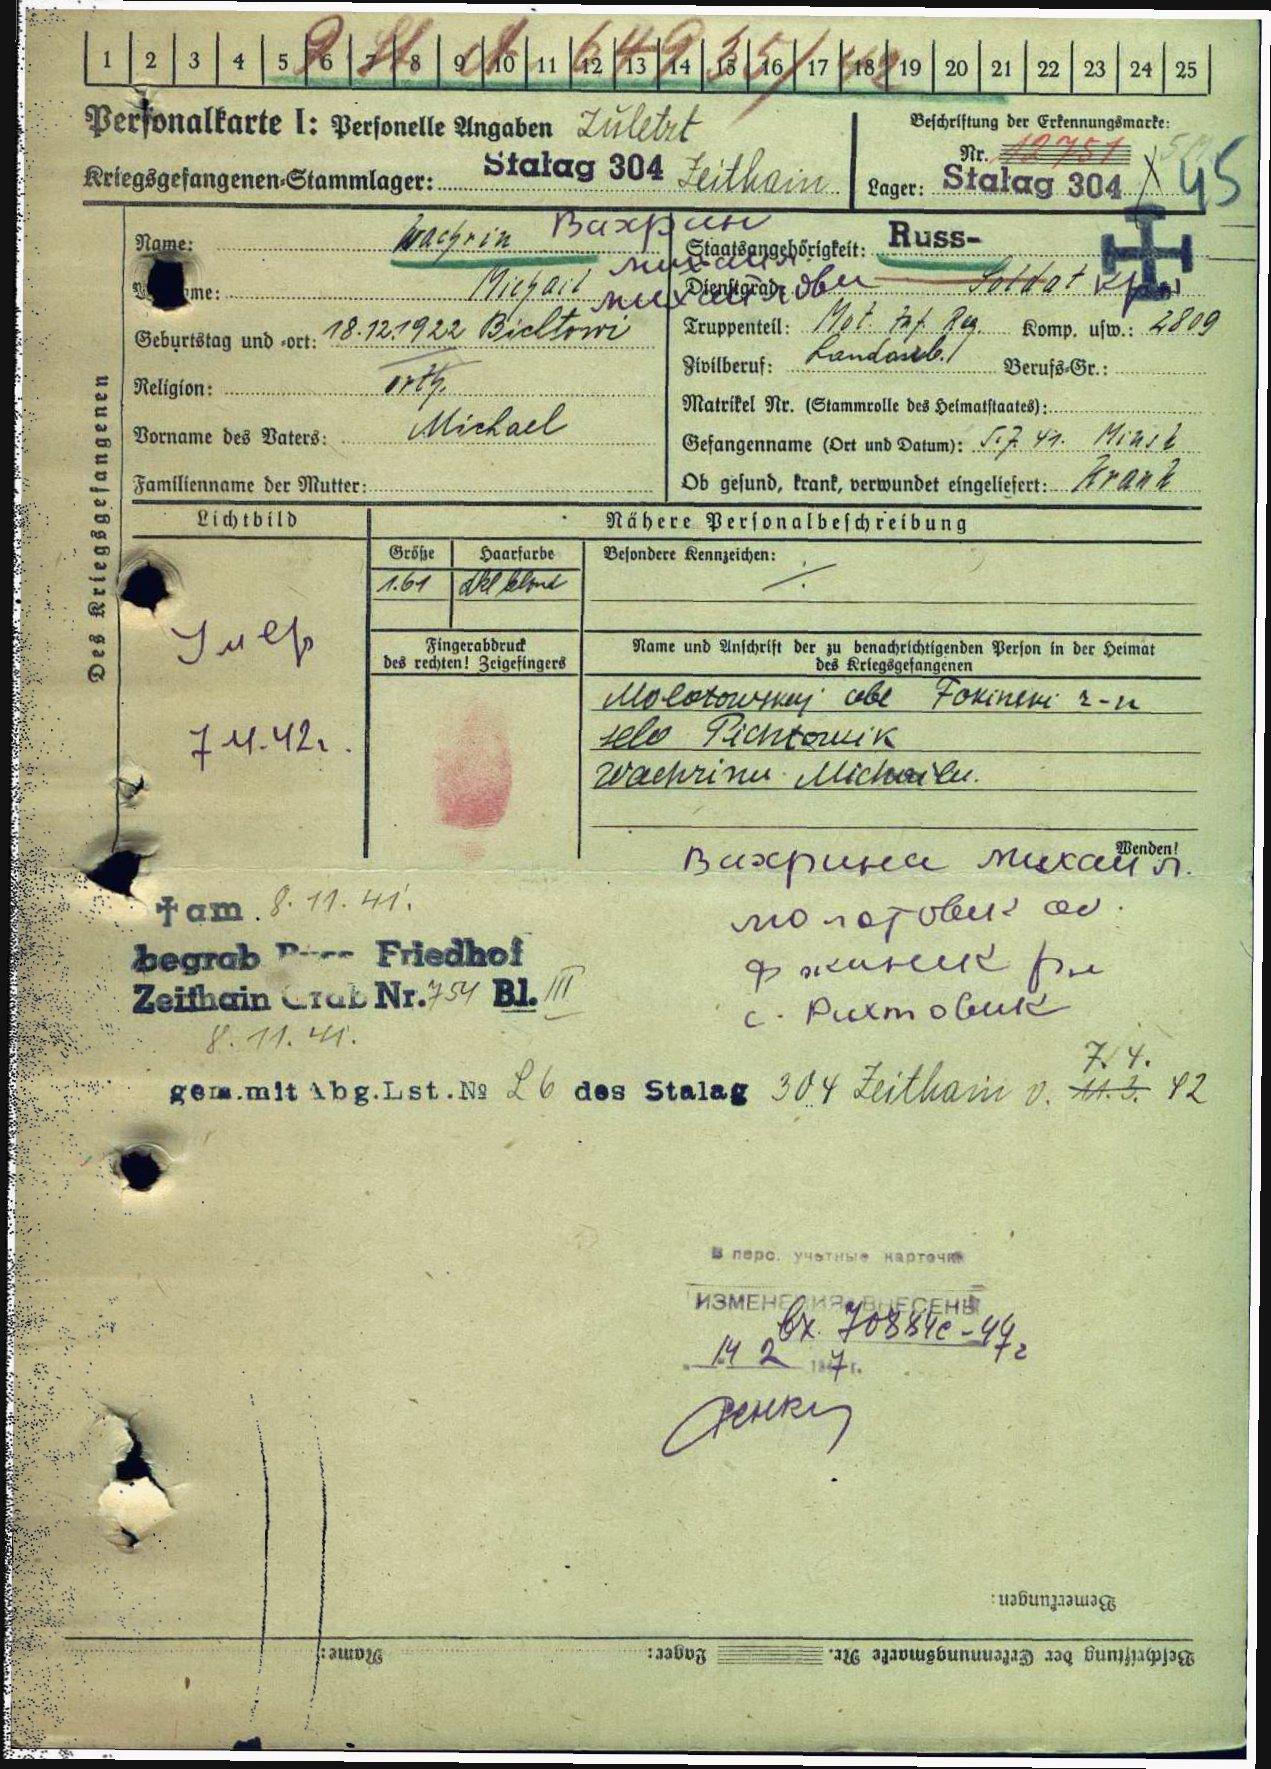 1 2 3 4 5 6 7 8 9 10 11 12 13 14 15 16 17 18 19 20 21 22 23 24 25
Personalkarte I: Personelle Angaben Zuletzt
Beschriftung der Erkennungsmarke:
Nr. 12751
Kriegsgefangenen-Stammlager: Stalag 304 Zeithain
Lager: Stalag 304
X 45
Des Kriegsgefangenen
Name: Wachrin Вахрин
Staatsangehörigkeit: Russ-
Михаил
Michail
Dienstgrad: Soldat кр
Михайлови
Geburtstag und -ort: 18.12.1922 Bichtowi
Truppenteil: Mot. Inf. Reg. Komp. usw.: 2809
Zivilberuf: Landarb. Berufs-Gr.:
Religion: orth.
Matrikel Nr. (Stammrolle des Heimatstaates):
Vorname des Vaters: Michael
Gefangennahme (Ort und Datum): 5.7.41. Minsk
Familienname der Mutter:
Ob gesund, krank, verwundet eingeliefert: Krank
Lichtbild
Nähere Personalbeschreibung
Größe Haarfarbe Besondere Kennzeichen:
1.61 dkl blond
Fingerabdruck
des rechten! Zeigefingers
Name und Anschrift der zu benachrichtigenden Person in der Heimat
des Kriegsgefangenen
Умер
7 11.42г.
Molotowskoj obl Fokinski r-n
selo Pichtowik
Wachrinu Michailu.
Wenden!
Вахрина Михаил.
молотовик об.
с. Рихтовик
† am 8.11.41.
begrab Russ Friedhof
Zeithain Grab Nr. 754 Bl. III
8.11.41.
7.4.
gem. mit Abg. Lst. № L6 des Stalag 304 Zeithain v. 11.3. 42
В перс. учетные карточки
ИЗМЕНЕНИЯ ВНЕСЕНЫ
вх. 70884с-44г
14 2 1947 г.
Bemerkungen:
Beschriftung der Erkennungsmarke Nr. Lager: Name: